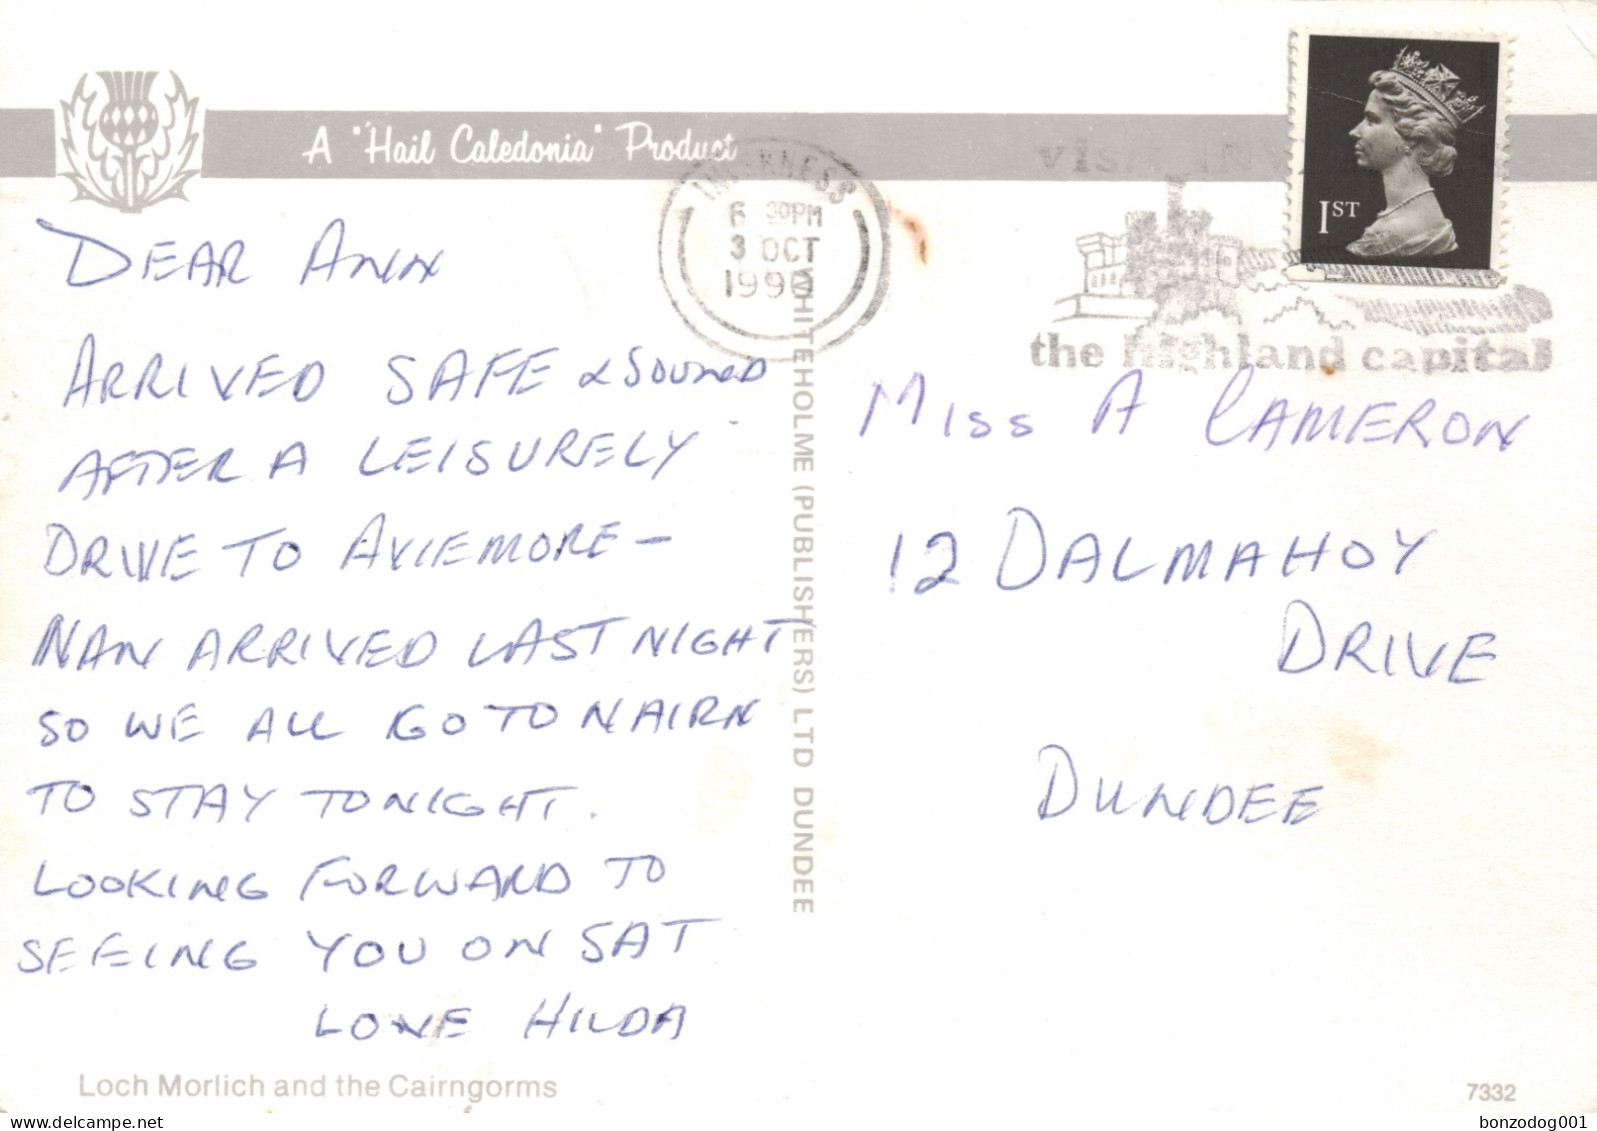 A "Hail Caledonia" Product
INVERNESS
6 30PM
3 OCT
1990
the highland capital
1ST
DEAR ANN
ARRIVED SAFE & SOUND
AFTER A LEISURELY
DRIVE TO AVIEMORE –
NAN ARRIVED LAST NIGHT
SO WE ALL GO TO NAIRN
TO STAY TONIGHT.
LOOKING FORWARD TO
SEEING YOU ON SAT
LOVE HILDA
WHITEHOLME (PUBLISHERS) LTD DUNDEE
MISS A CAMERON
12 DALMAHOY
DRIVE
DUNDEE
Loch Morlich and the Cairngorms
7332
bonzodog001